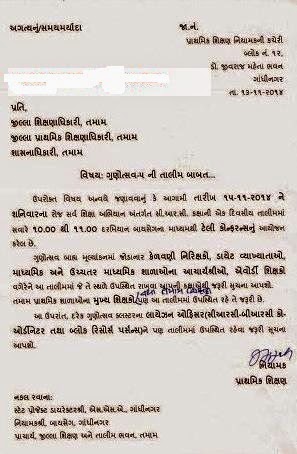 અગત્યનું/સમયમર્યાદા
જા.નં.
પ્રાથમિક શિક્ષણ નિયામકની કચેરી
બ્લોક નં. ૧૨,
ડૉ. જીવરાજ મહેતા ભવન
ગાંધીનગર
તા. ૧૩-૧૧-૨૦૧૪
પ્રતિ,
જીલ્લા શિક્ષણાધિકારી, તમામ
જીલ્લા પ્રાથમિક શિક્ષણાધિકારી, તમામ
શાસનાધિકારી, તમામ
વિષય: ગુણોત્સવ-૫ ની તાલીમ બાબત...
ઉપરોક્ત વિષય અન્વયે જણાવવાનું કે આગામી તારીખ ૧૫-૧૧-૨૦૧૪ ને
શનિવારના રોજ સર્વ શિક્ષા અભિયાન અંતર્ગત સી.આર.સી. કક્ષાની એક દિવસીય તાલીમમાં
સવારે ૧૦.૦૦ થી ૧૧.૦૦ દરમિયાન બાયસેગના માધ્યમથી ટેલી કોન્ફરન્સનું આયોજન
કરેલ છે.
ગુણોત્સવ બાહ્ય મૂલ્યાંકનમાં જોડાનાર કેળવણી નિરિક્ષકો, ડાયેટ વ્યાખ્યાતાઓ,
માધ્યમિક અને ઉચ્ચતર માધ્યમિક શાળાઓના આચાર્યશ્રીઓ, એવોર્ડી શિક્ષકો
વગેરેને આ તાલીમમાં જે તે સ્થળે ઉપસ્થિત રાખવા આપની કક્ષાએથી જરૂરી સૂચના આપશો.
તમામ પ્રાથમિક શાળાઓના મુખ્ય શિક્ષકો તથા તમામ શિક્ષકો પણ આ તાલીમમાં ઉપસ્થિત રહે તે જરૂરી છે.
આ ઉપરાંત, દરેક ગુણોત્સવ ક્લસ્ટરના લાયેઝન ઓફિસર(સીઆરસી-બીઆરસી કો-
ઓર્ડીનેટર તથા બ્લોક રિસોર્સ પર્સન્સ)ને પણ તાલીમમાં ઉપસ્થિત રહેવા જરૂરી સૂચના
આપશો.
નિયામક
પ્રાથમિક શિક્ષણ
નકલ રવાના:
સ્ટેટ પ્રોજેક્ટ ડાયરેક્ટરશ્રી, એસ.એસ.એ., ગાંધીનગર
નિયામકશ્રી, બાયસેગ, ગાંધીનગર
પ્રાચાર્ય, જીલ્લા શિક્ષણ અને તાલીમ ભવન, તમામ